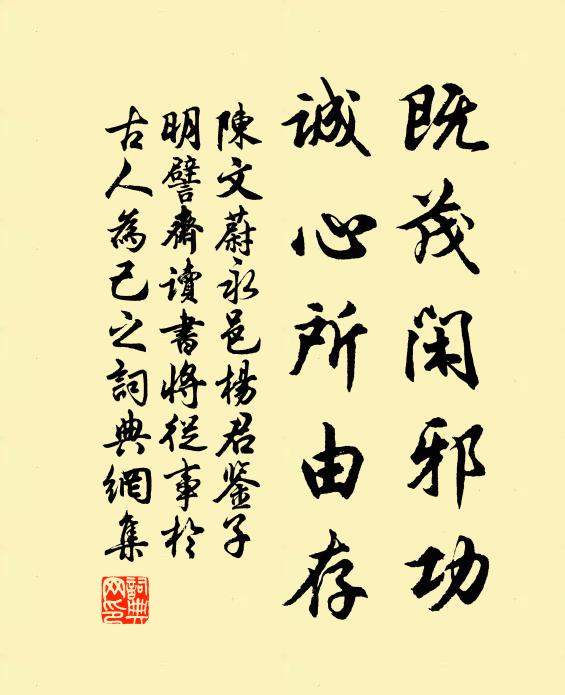 既茂閑邪功
誠心所由存
陳文蔚永邑楊君鉴子
明譬齋讀書將從事於
古人為己之詞典網集
詞典
网印